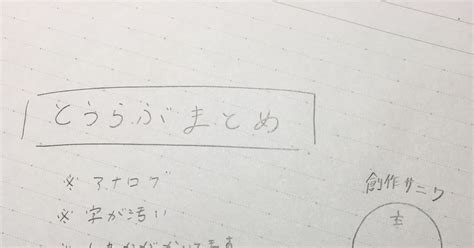 とうらぶまとめ
※アナログ
※字が汚い
創作サニワ
主